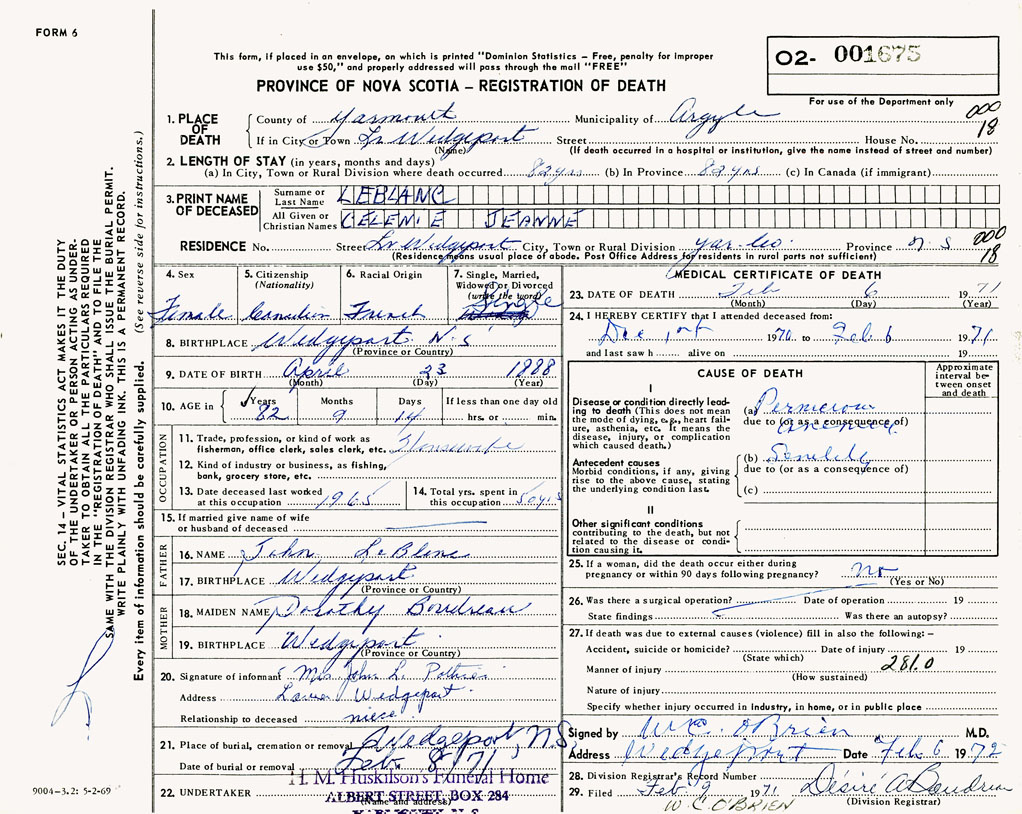 FORM 6
This form, if placed in an envelope, on which is printed "Dominion Statistics – Free, penalty for improper
use $50," and properly addressed will pass through the mail "FREE"
PROVINCE OF NOVA SCOTIA – REGISTRATION OF DEATH
O2- 001675
For use of the Department only
000
18
1. PLACE OF DEATH
County of Yarmouth Municipality of Argyle
If in City or Town Lr Wedgeport Street House No.
(Name) (If death occurred in a hospital or institution, give the name instead of street and number)
2. LENGTH OF STAY (in years, months and days)
(a) In City, Town or Rural Division where death occurred 82 yrs (b) In Province 82 yrs (c) In Canada (if immigrant)
3. PRINT NAME OF DECEASED
Surname or Last Name LEBLANC
All Given or Christian Names CELENIE JEANNE
RESIDENCE No. Street Lr Wedgeport City, Town or Rural Division Yar. Co. Province N.S
000
18
(Residence means usual place of abode. Post Office Address for residents in rural parts not sufficient)
4. Sex
Female
5. Citizenship
(Nationality)
Canadian
6. Racial Origin
French
7. Single, Married,
Widowed or Divorced
(write the word)
Single
8. BIRTHPLACE Wedgeport N.S
(Province or Country)
9. DATE OF BIRTH April 23 1888
(Month) (Day) (Year)
10. AGE in Years Months Days If less than one day old
82 9 14 hrs. or min.
OCCUPATION
11. Trade, profession, or kind of work as
fisherman, office clerk, sales clerk, etc. Housework
12. Kind of industry or business, as fishing,
bank, grocery store, etc.
13. Date deceased last worked
at this occupation 1965
14. Total yrs. spent in
this occupation 50 yrs
15. If married give name of wife
or husband of deceased
FATHER
16. NAME John LeBlanc
17. BIRTHPLACE Wedgeport
(Province or Country)
MOTHER
18. MAIDEN NAME Dorothy Boudreau
19. BIRTHPLACE Wedgeport
(Province or Country)
20. Signature of informant Mrs John L. Pothier
Address Lower Wedgeport
Relationship to deceased niece
21. Place of burial, cremation or removal Wedgeport, N.S
Date of burial or removal Feb 8 71
22. UNDERTAKER H. M. Huskilson's Funeral Home
(Name and address)
ALBERT STREET, BOX 284
YARMOUTH, N. S.
MEDICAL CERTIFICATE OF DEATH
23. DATE OF DEATH Feb 6 1971
(Month) (Day) (Year)
24. I HEREBY CERTIFY that I attended deceased from:
Dec 1st 1970 to Feb 6 1971
and last saw h alive on 19
CAUSE OF DEATH
Approximate interval between onset and death
I
Disease or condition directly leading to death (This does not mean the mode of dying, e.g., heart failure, asthenia, etc. It means the disease, injury, or complication which caused death.)
(a) Pernicious
due to (or as a consequence of)
Antecedent causes
Morbid conditions, if any, giving rise to the above cause, stating the underlying condition last.
(b) Senility
due to (or as a consequence of)
(c)
II
Other significant conditions
contributing to the death, but not related to the disease or condition causing it.
25. If a woman, did the death occur either during
pregnancy or within 90 days following pregnancy? no
(Yes or No)
26. Was there a surgical operation? Date of operation 19
State findings Was there an autopsy?
27. If death was due to external causes (violence) fill in also the following: –
Accident, suicide or homicide? Date of injury 19
(State which)
Manner of injury 281.0
(How sustained)
Nature of injury
Specify whether injury occurred in industry, in home, or in public place
Signed by W.C. O'Brien M.D.
Address Wedgeport Date Feb 6 1972
28. Division Registrar's Record Number
29. Filed Feb 9 1971 Désiré A Boudreau
(Division Registrar)
W. C. O'BRIEN
SEC. 14 – VITAL STATISTICS ACT MAKES IT THE DUTY
OF THE UNDERTAKER OR PERSON ACTING AS UNDER-
TAKER TO OBTAIN ALL THE PARTICULARS REQUIRED
IN THE "REGISTRATION OF DEATH" AND TO FILE THE
SAME WITH THE DIVISION REGISTRAR WHO SHALL ISSUE THE BURIAL PERMIT.
WRITE PLAINLY WITH UNFADING INK. THIS IS A PERMANENT RECORD.
Every item of information should be carefully supplied. (See reverse side for instructions.)
9004-3.2: 5-2-69